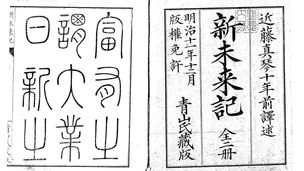 近藤真琴十年前譯述
新未来記 全二冊
明治十一年十二月
版權免許
青山氏藏版
富有之
謂大業
日新之
新未来記